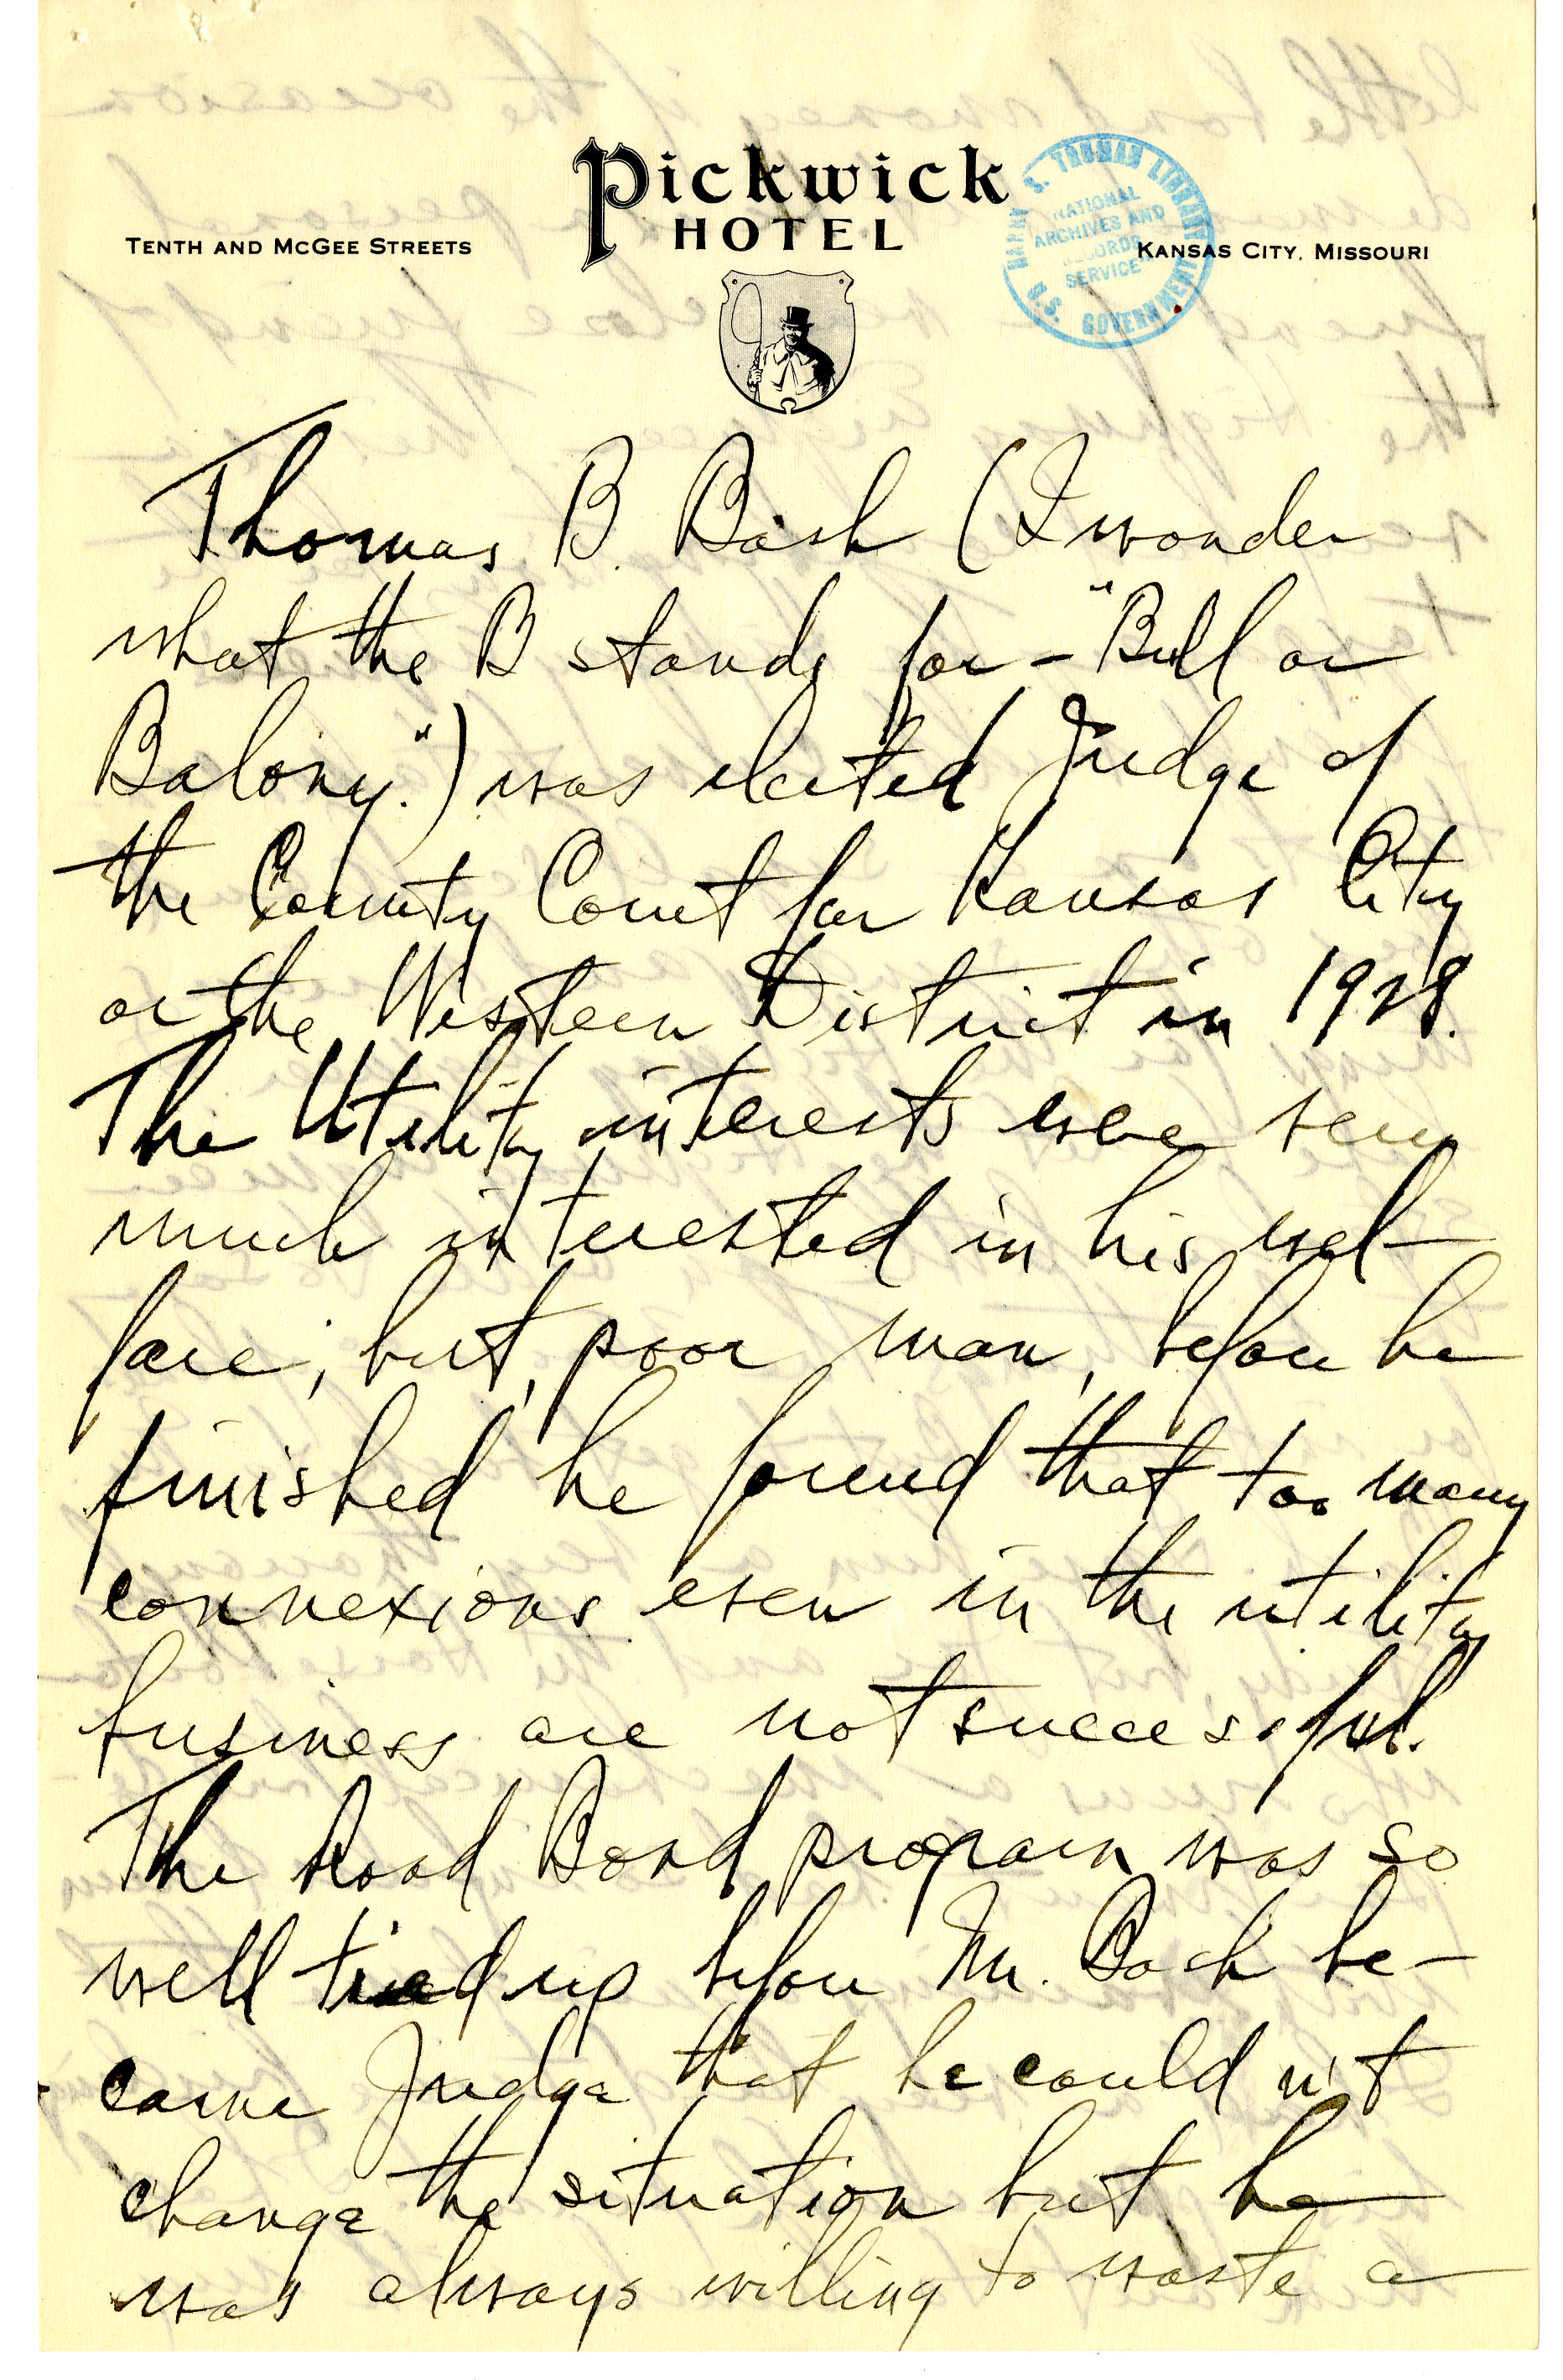 Pickwick
HOTEL
TENTH AND MCGEE STREETS
KANSAS CITY, MISSOURI
HARRY S. TRUMAN LIBRARY
NATIONAL
ARCHIVES AND
RECORDS
SERVICE
U.S. GOVERNMENT
Thomas B. Bash (I wonder
what the B stands for - "Bull or
Balony.") was elected Judge of
the County Court for Kansas City
or the Western District in 1928.
The Utility interests were very
much interested in his wel-
fare, but, poor man, before he
finished he found that too many
connexions even in the utility
business are not successful.
The Road Bond program was so
well tied up before Mr. Bash be-
came Judge that he could n't
change the situation but he
was always willing to waste a